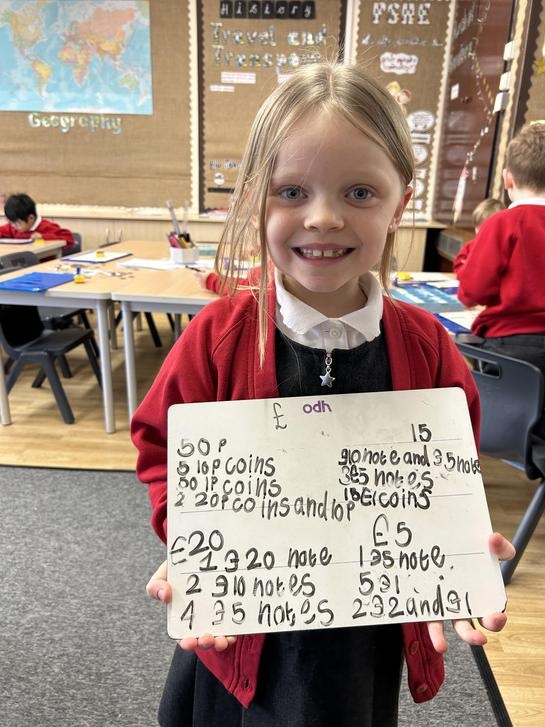 History
PSHE
Travel and
Transport
Geography
£ odh
50p
5 10p coins
50 1p coins
2 20p coins and 10p
15
£10 note and £5 note
3£5 notes
15£1 coins
£20
1 £20 note
2 £10 notes
4 £5 notes
£5
1£5 note.
5£1.
2£2 and £1